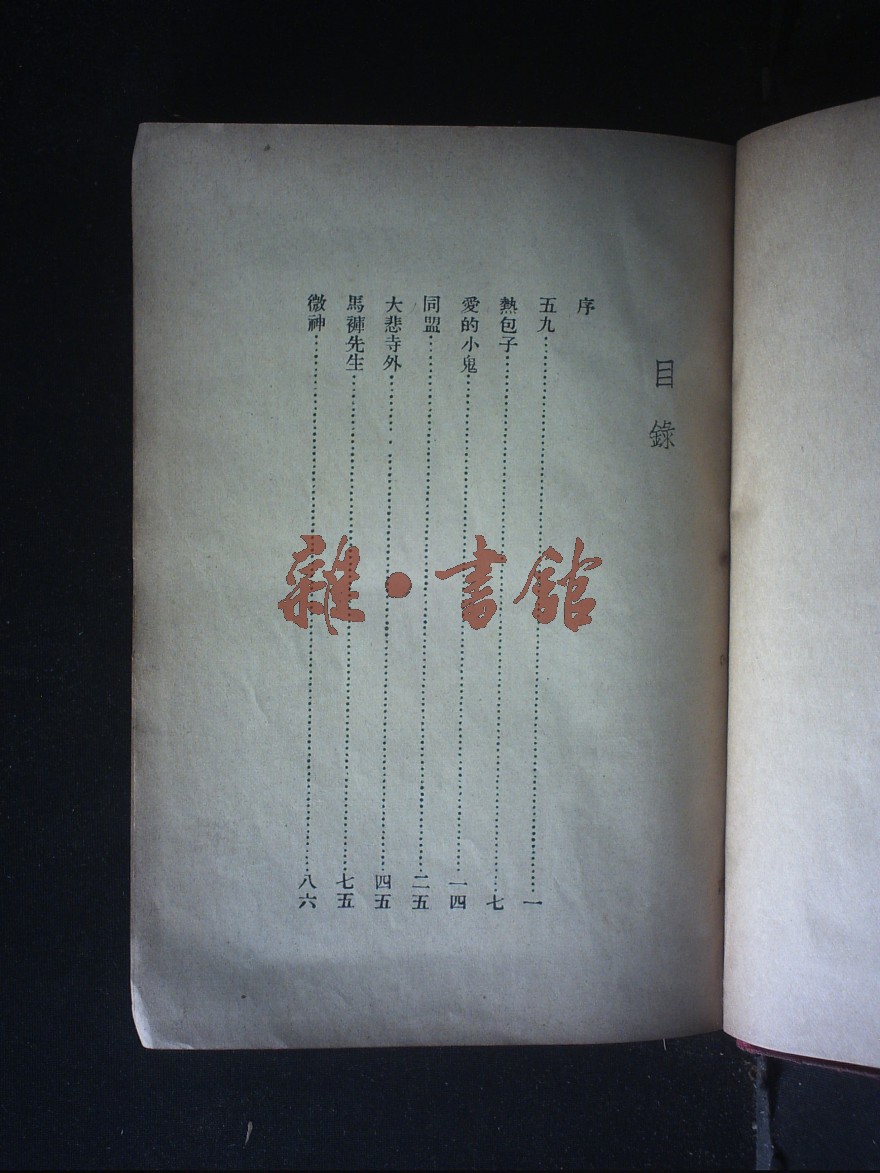 目錄
序
五九……一
熱包子……七
愛的小鬼……一四
同盟……二五
大悲寺外……四五
馬褲先生……七五
微神……八六
雜·書館